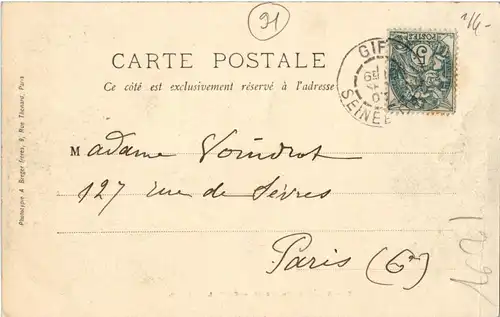 91
1/6-
CARTE POSTALE
Ce côté est exclusivement réservé à l'adresse
GIF
SEINE
5
Madame Voindrot
127 rue de Sèvres
Paris (6e)
Phototypie A Breger frères, 9, Rue Thénard, Paris